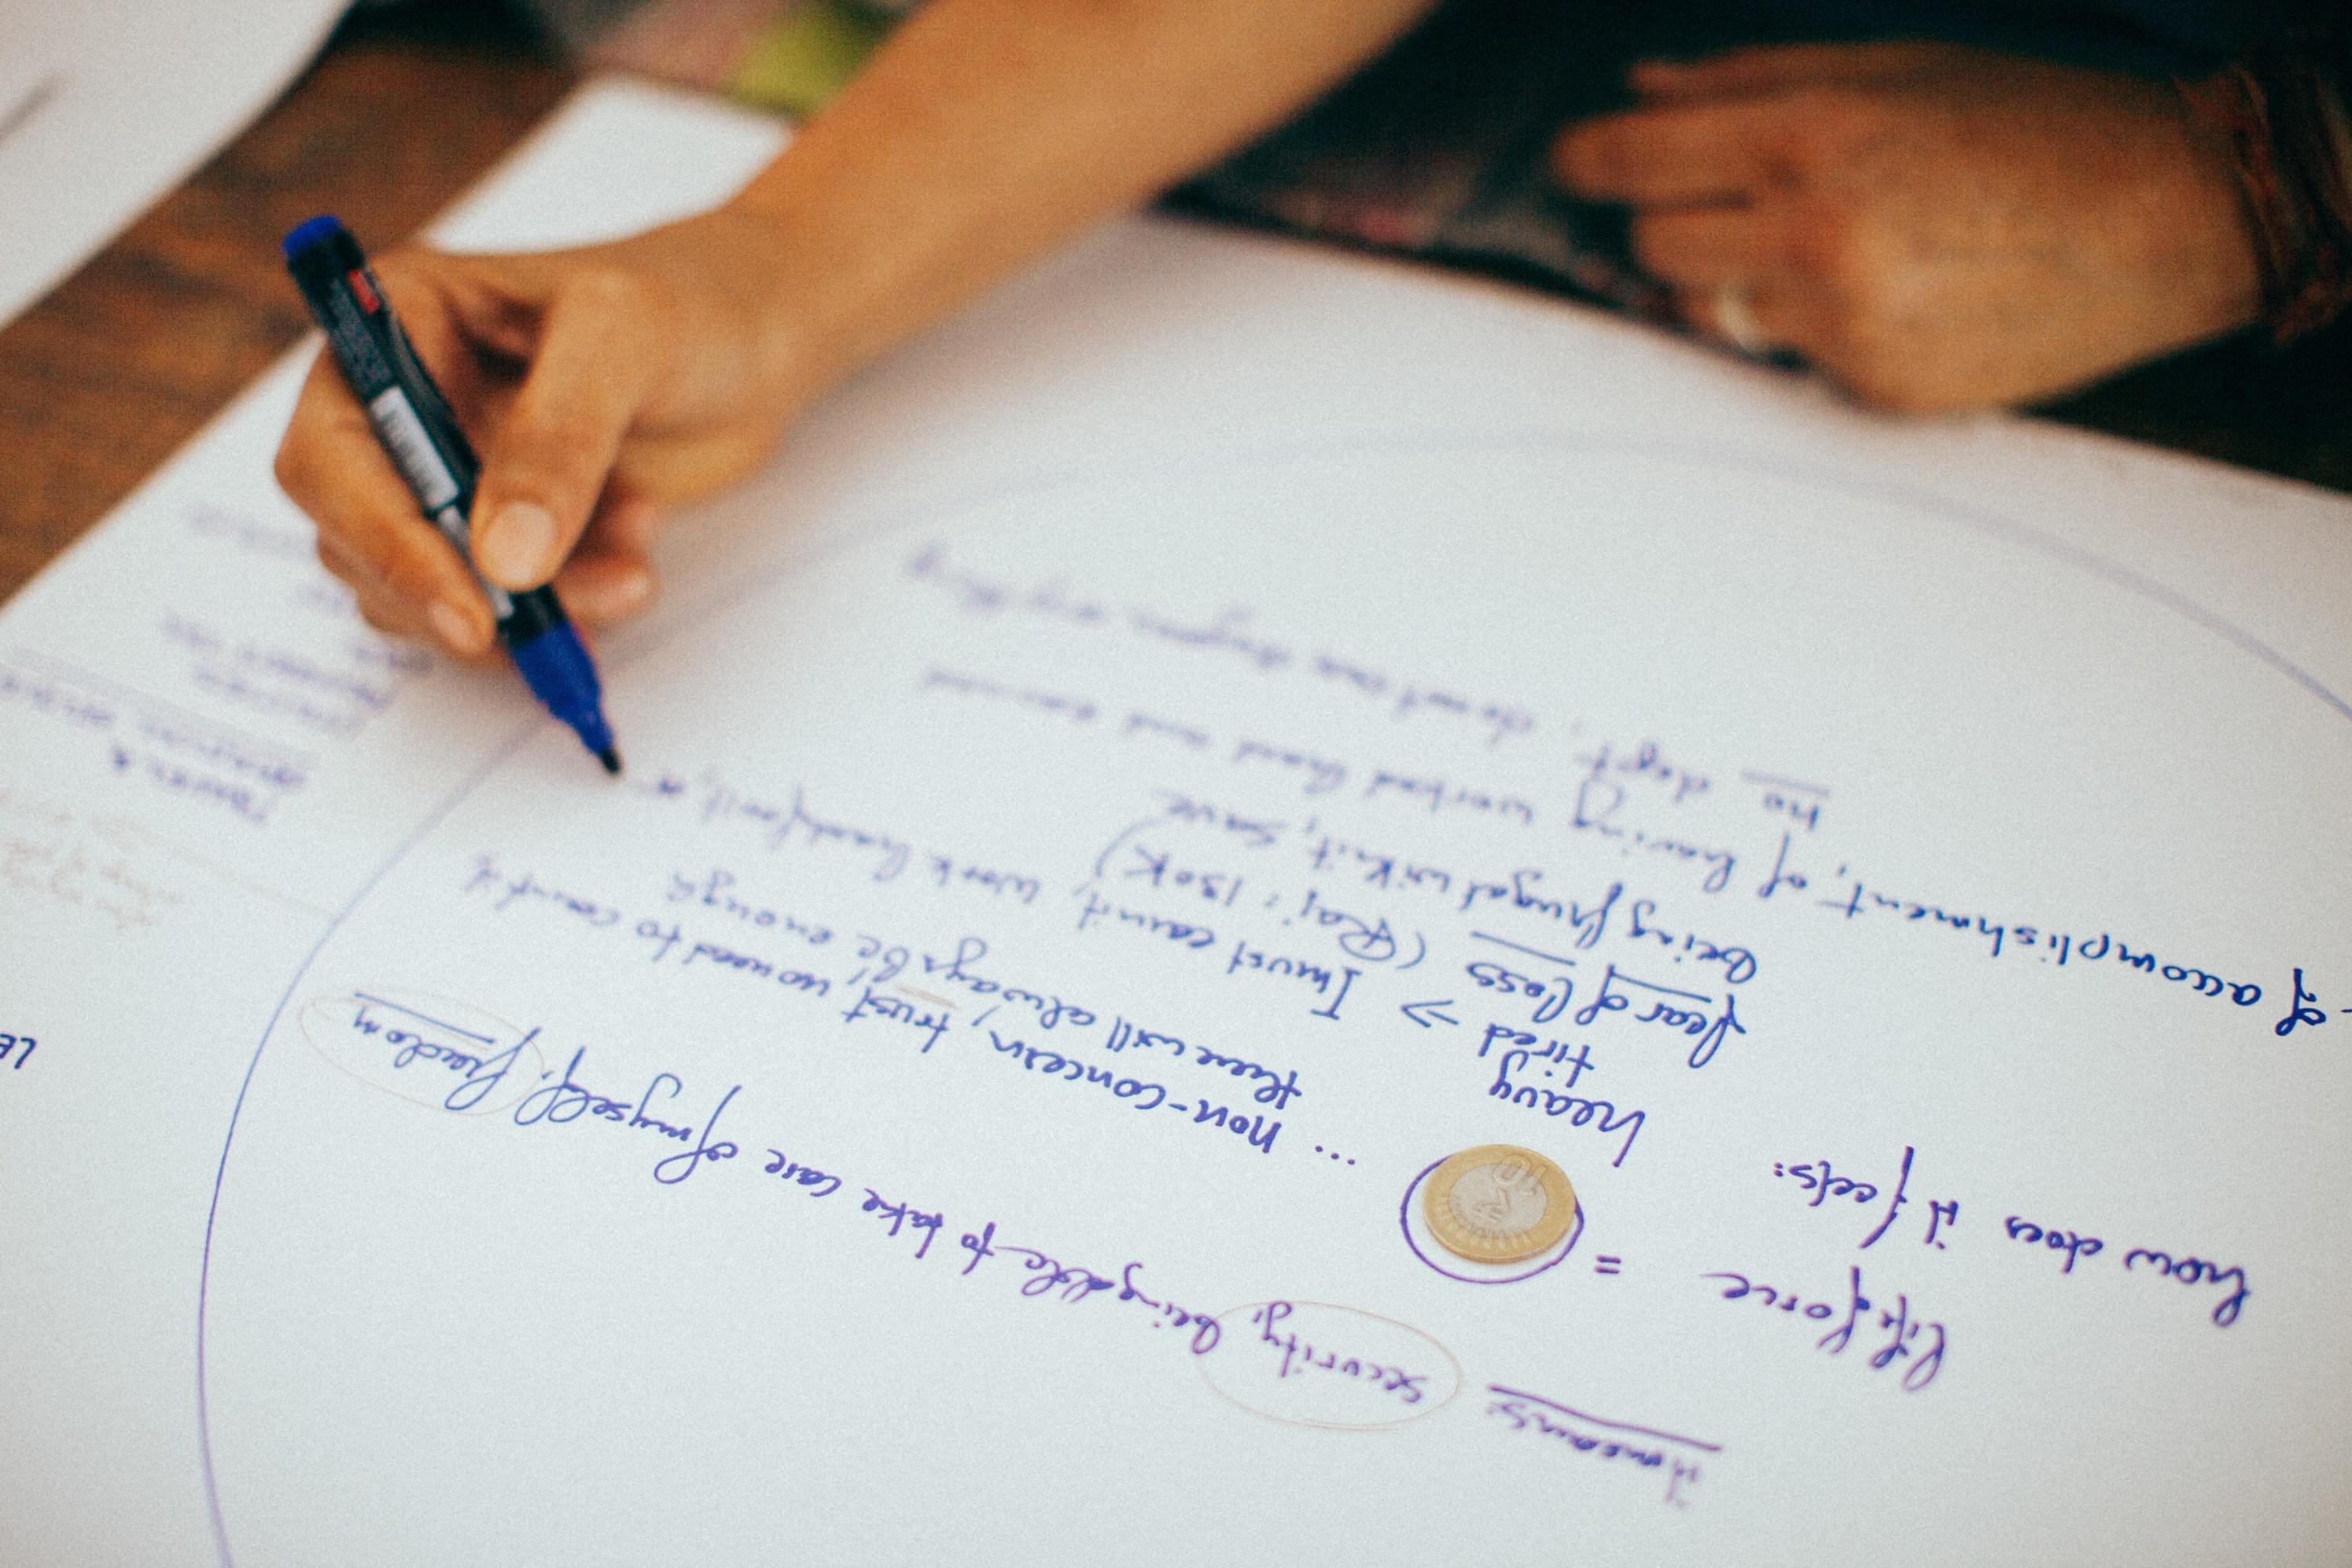 it means: security, being able to take care of myself, freedom
life force =
₹ 10
... non-concern, trust no need to count it
there will always be enough
how does it feels: heavy
tired → I must earn it, work hard for it,
fear of loss (Raj: 130K)
being frugal with it, save
of accomplishment, of having worked hard and earned
no dept, do not owe anyone anything
LE